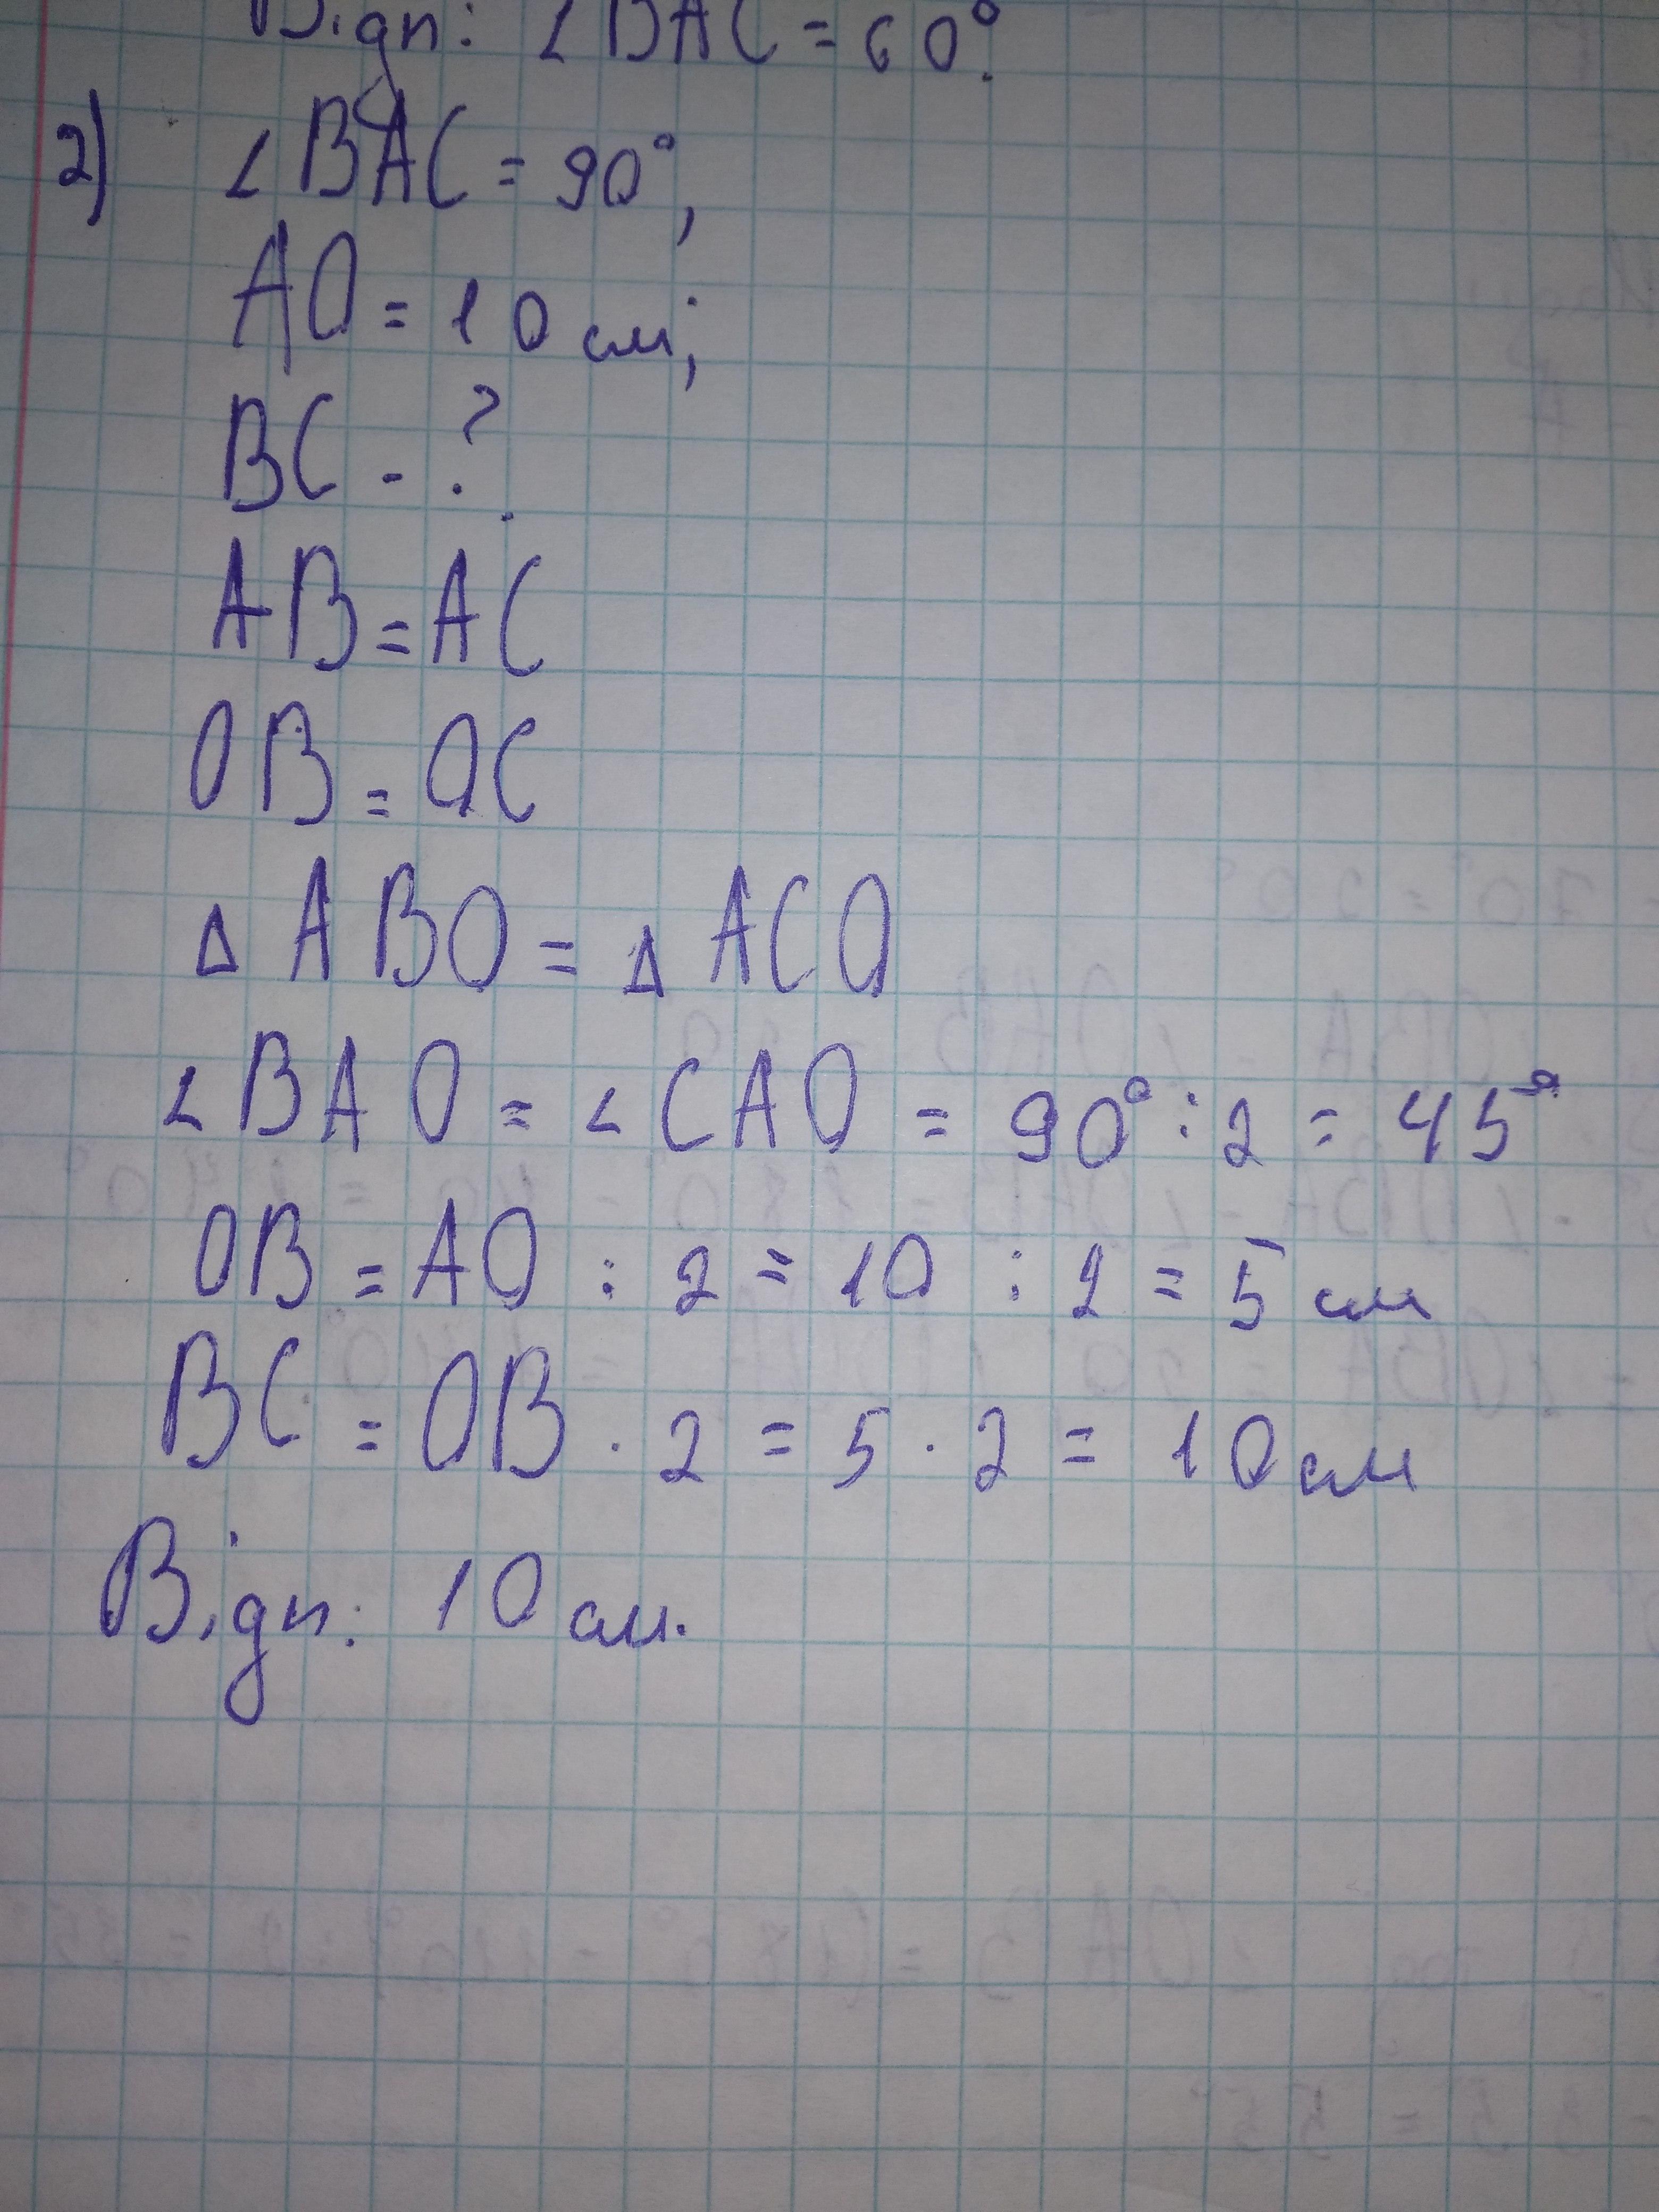 Відп: ∠BAC = 60°.
2) ∠BAC = 90°,
AO = 10 см;
BC - ?
AB = AC
OB = OC
Δ ABO = Δ ACO
∠BAO = ∠CAO = 90° : 2 = 45°
OB = AO : 2 = 10 : 2 = 5 см
BC = OB · 2 = 5 · 2 = 10 см
Відп: 10 см.